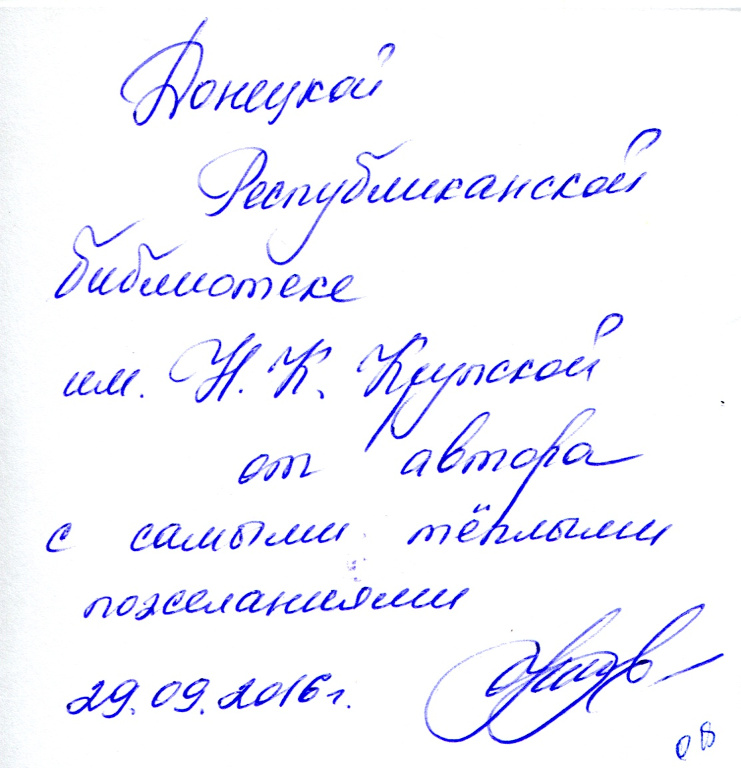 Донецкой
Республиканской
библиотеке
им. Н. К. Крупской
от автора
с самыми тёплыми
пожеланиями
29.09.2016 г.